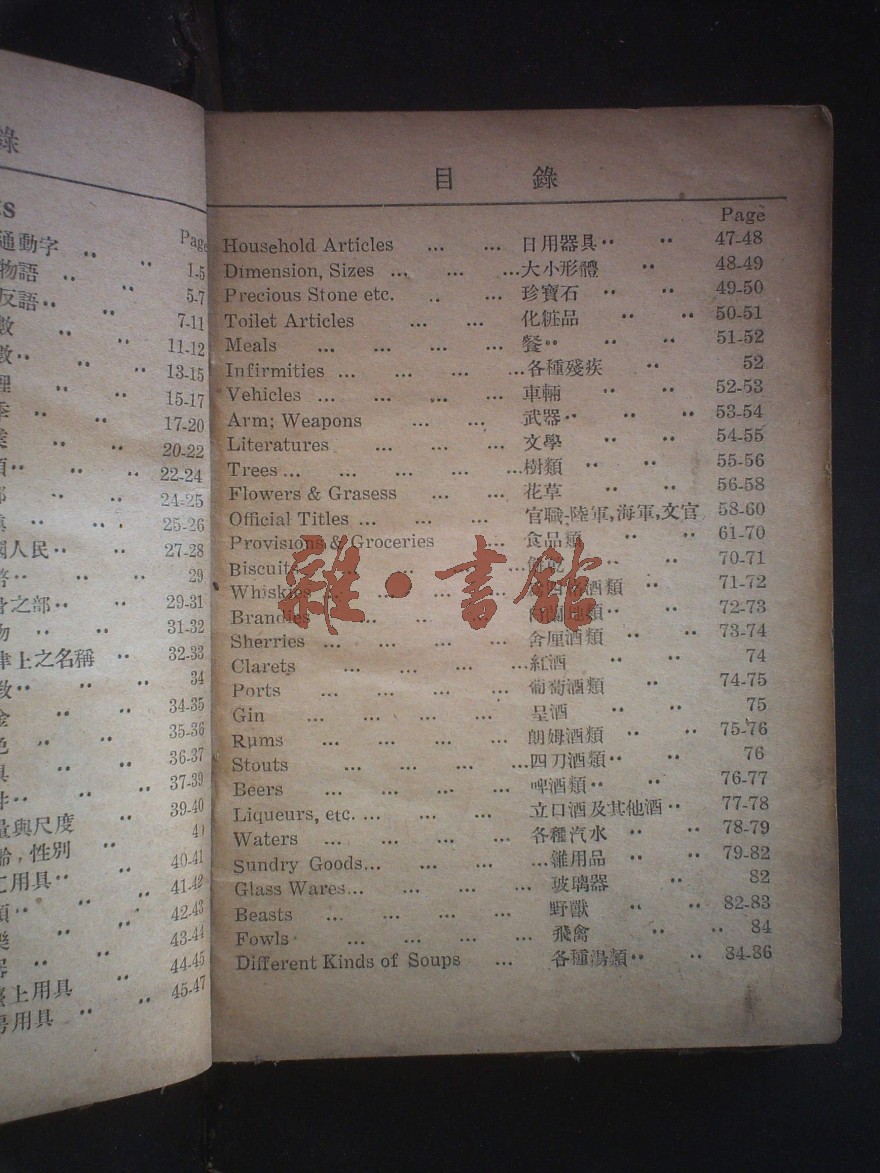 錄
ts
Page
通動字 .. .. 1-5
物語 .. .. 5-7
反語.. .. 7-11
數 .. 11-12
數.. .. 13-15
理 .. 15-17
季 .. .. 17-20
業 .. .. 20-22
類.. .. 22-24
部 .. .. 24-25
.. .. 25-26
國人民.. .. 27-28
幣.. .. 29
身之部.. .. 29-31
物 .. .. 31-32
律上之名稱 .. 32-33
數.. .. 34
金 .. .. 34-35
色 .. .. 35-36
具 .. .. 36-37
.. .. 37-39
量與尺度 .. 39-40
齡,性別 .. 40
工用具.. .. 40-41
類.. .. 41-42
樂 .. .. 42-43
器 .. .. 43-44
上用具 .. 44-45
房用具 .. .. 45-47
目 錄
Page
Household Articles ... ... 日用器具.. .. 47-48
Dimension, Sizes ... ... ...大小形體 .. 48-49
Precious Stone etc. .. ... 珍寶石 .. .. 49-50
Toilet Articles ... ... 化粧品 .. .. 50-51
Meals ... ... ... ... 餐.. .. .. 51-52
Infirmities ... ... ... ...各種殘疾 .. 52
Vehicles ... ... ... ... 車輛 .. .. 52-53
Arm; Weapons ... ... 武器.. .. .. 53-54
Literatures ... ... ... 文學 .. .. 54-55
Trees ... ... ... ... ...樹類 .. .. 55-56
Flowers & Grasess ... ... 花草 .. .. 56-58
Official Titles ... ... ... 官職-陸軍,海軍,文官 58-60
Provisions & Groceries ... 食品類 .. .. 61-70
Biscuits ... ... ... 餅乾 .. .. 70-71
Whiskies ... ... ... ... 酒類 .. 71-72
Brandies ... ... ... 蘭地類.. .. 72-73
Sherries ... ... ... ... 舍厘酒類 .. .. 73-74
Clarets ... ... ... ...紅酒 .. .. 74
Ports ... ... ... ... 葡萄酒類 .. 74-75
Gin ... ... ... ... 呈酒 .. .. 75
Rums ... ... ... ... 朗姆酒類 .. .. 75-76
Stouts ... ... ... ...四刀酒類.. .. 76
Beers ... ... ... ... 啤酒類.. .. 76-77
Liqueurs, etc. ... ... ... 立口酒及其他酒.. 77-78
Waters ... ... ... ... 各種汽水 .. .. 78-79
Sundry Goods... ... ... ...雜用品 .. .. 79-82
Glass Wares... ... ... ... 玻璃器 .. 82
Beasts ... ... ... ... 野獸 .. .. 82-83
Fowls ... ... ... ... 飛禽 .. .. 84
Different Kinds of Soups ... 各種湯類.. .. 84-86
雜·書館